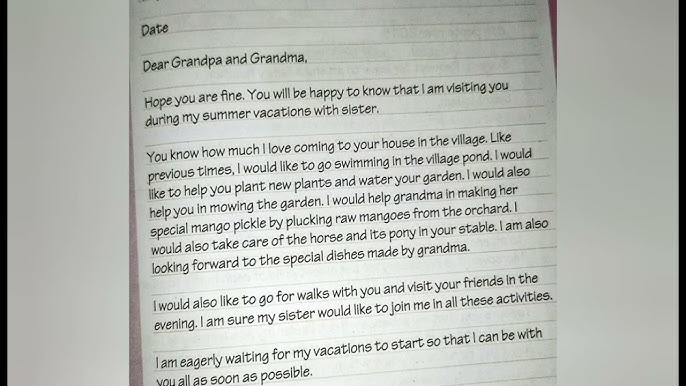 Date
Dear Grandpa and Grandma,
Hope you are fine. You will be happy to know that I am visiting you
during my summer vacations with sister.
You know how much I love coming to your house in the village. Like
previous times, I would like to go swimming in the village pond. I would
like to help you plant new plants and water your garden. I would also
help you in mowing the garden. I would help grandma in making her
special mango pickle by plucking raw mangoes from the orchard. I
would also take care of the horse and its pony in your stable. I am also
looking forward to the special dishes made by grandma.
I would also like to go for walks with you and visit your friends in the
evening. I am sure my sister would like to join me in all these activities.
I am eagerly waiting for my vacations to start so that I can be with
you all as soon as possible.